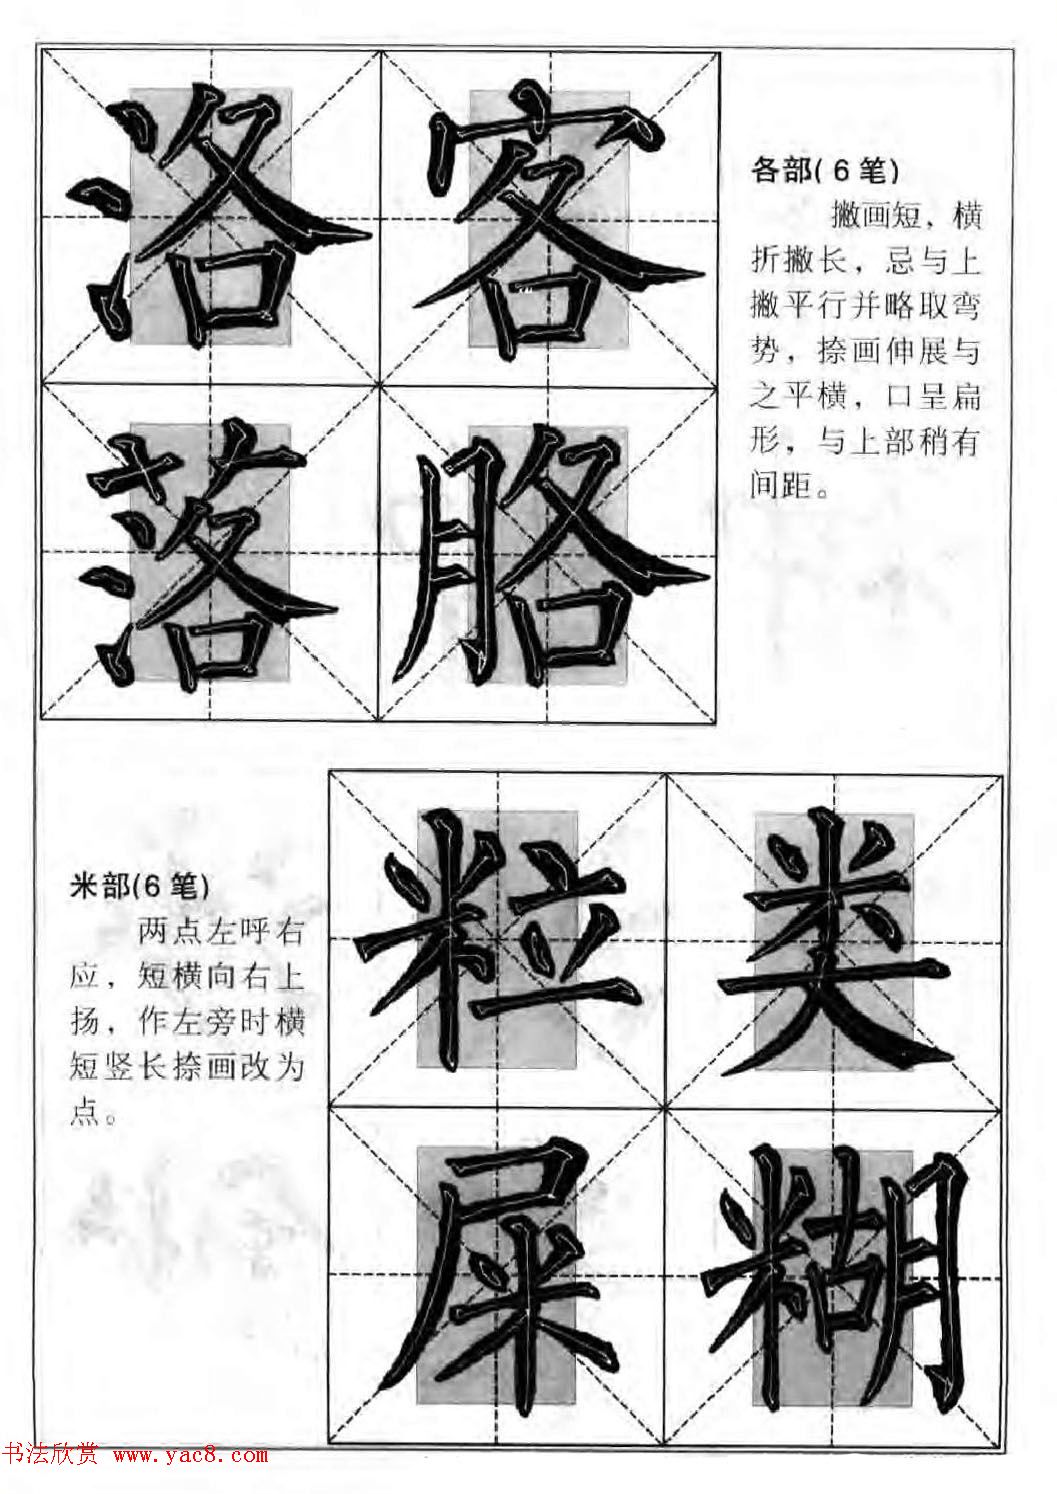 洛客
落胳
各部(6笔)
撇画短，横
折撇长，忌与上
撇平行并略取弯
势，捺画伸展与
之平横，口呈扁
形，与上部稍有
间距。
米部(6笔)
两点左呼右
应，短横向右上
扬，作左旁时横
短竖长捺画改为
点。
粒类
屎糊
书法欣赏 www.yac8.com